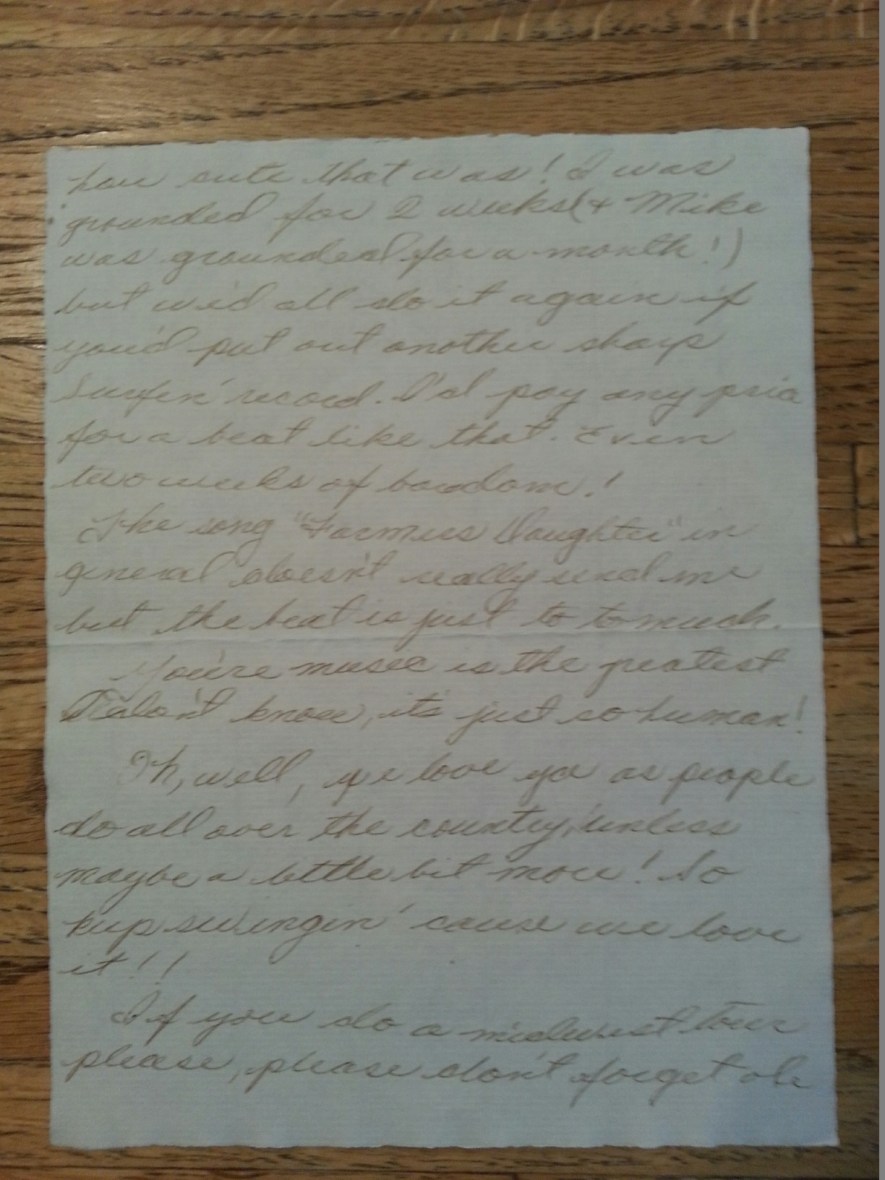 how cute that was! I was
grounded for 2 weeks (& Mike
was grounded for a month!)
but we'd all do it again if
you'd put out another sharp
Surfin' record. I'd pay any price
for a beat like that. Even
two weeks of boredom!
The song "Farmers Daughter" in
general doesn't really send me
but the beat is just to to much.
You're music is the greatest
I don't know, it's just so human!
Oh, well, we love ya as people
do all over the country, unless
maybe a little bit more! So
keep swingin' cause we love
it!!
If you do a midwest tour
please, please don't forget ole